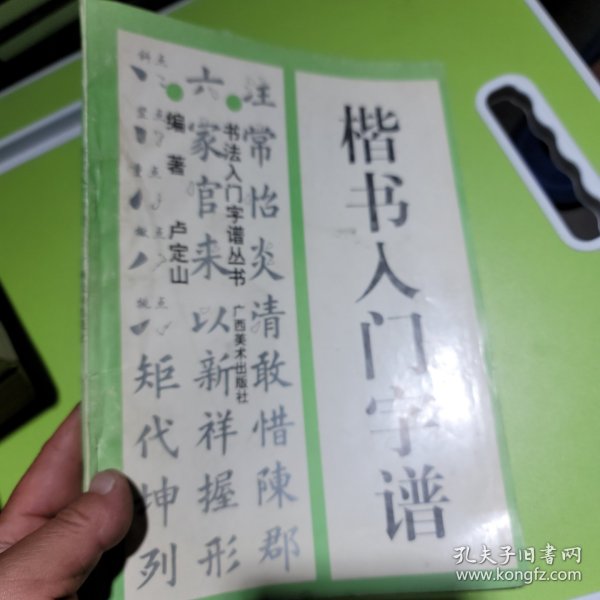 楷书入门字谱
书法入门字谱丛书
广西美术出版社
编著 卢定山
注常怡炎清敢惜陳郡
六家官来以新祥握形
斜点
竖点
点
点
挑点
矩代坤列
孔夫子旧书网
www.kongfz.com